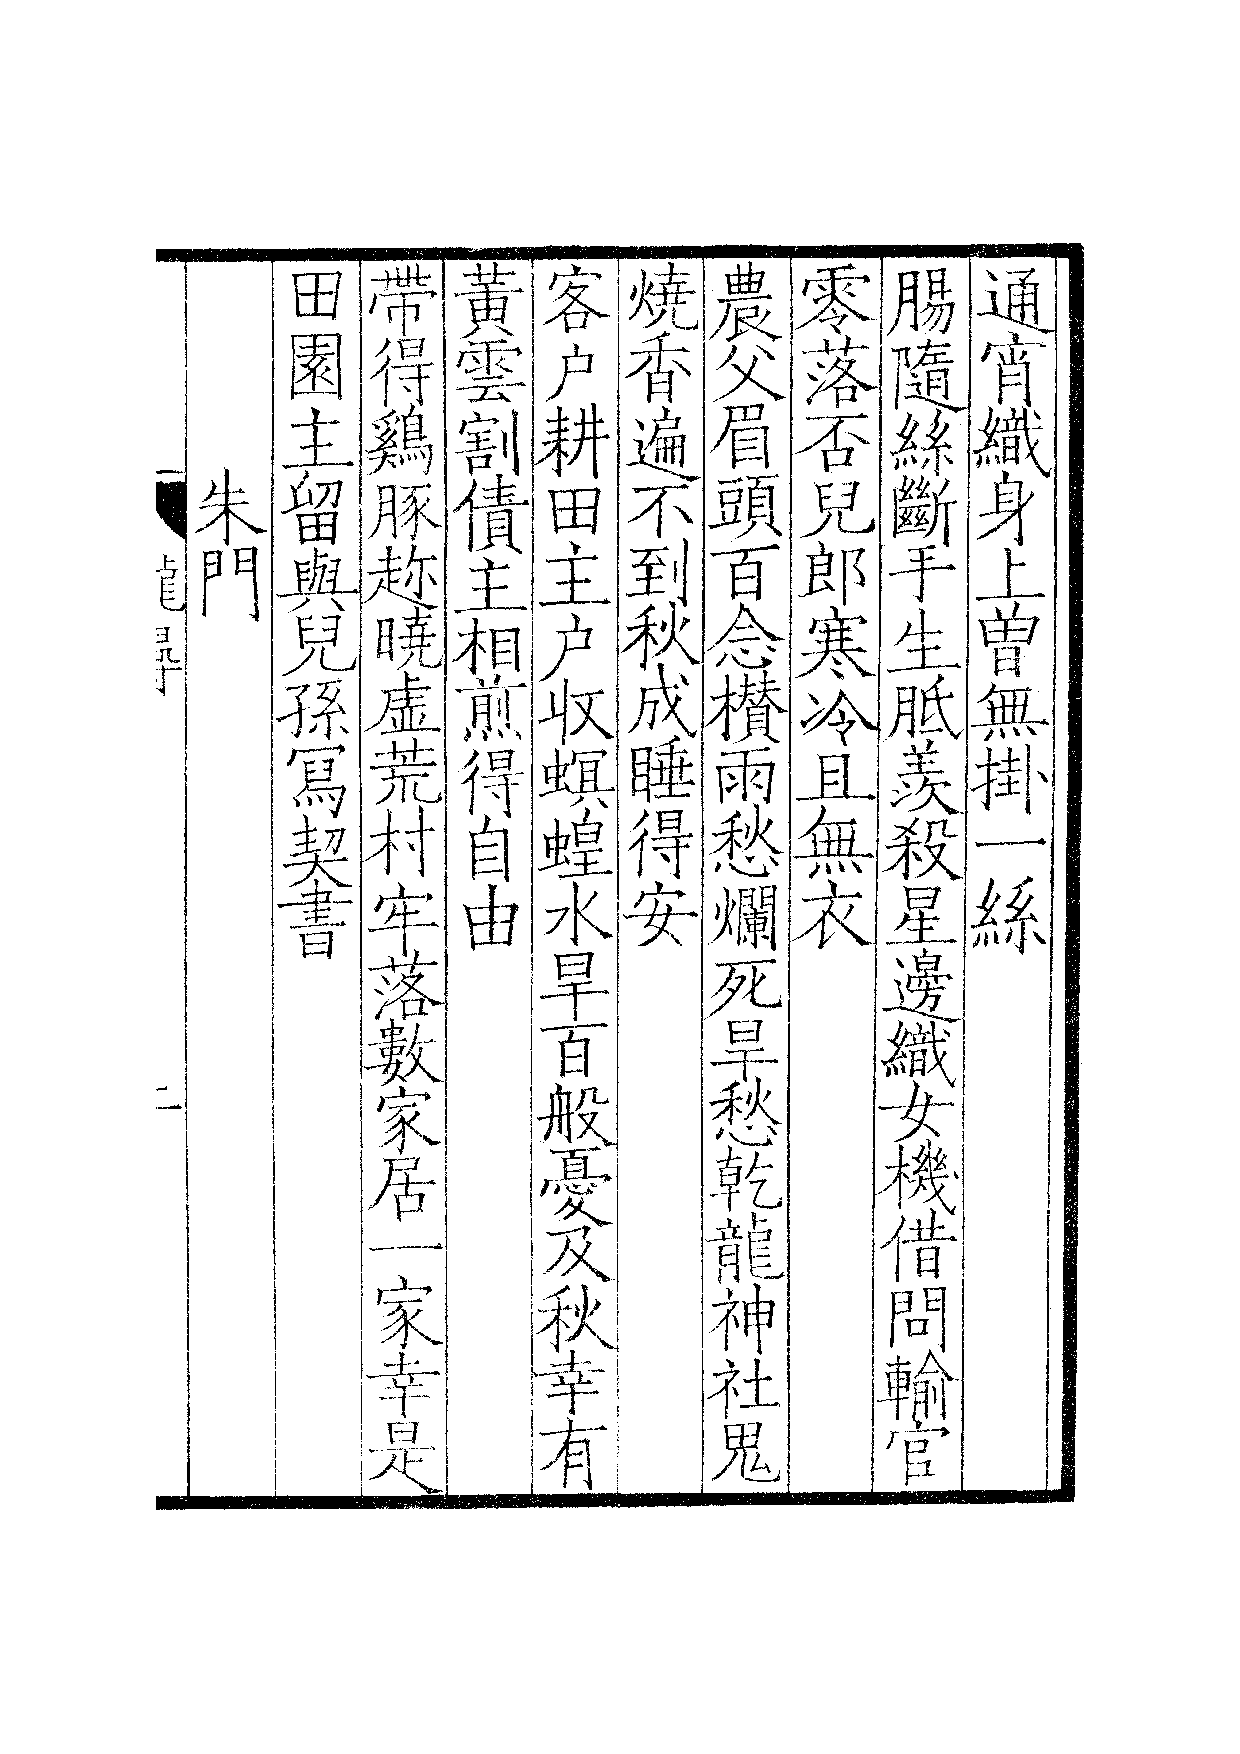 通宵織身上曽無掛一絲
腸隨絲斷手生胝羨殺星邊織女機借問輸官
零落否兒郎寒冷且無衣
農父眉頭百念欑雨愁爛死旱愁乾龍神社鬼
燒香遍不到秋成睡得安
客户耕田主户收螟蝗水旱百般憂及秋幸有
黃雲割債主相煎得自由
帶得鷄豚趂曉虛荒村牢落數家居一家幸是
田園主留與兒孫冩契書
朱門
龍尋
二